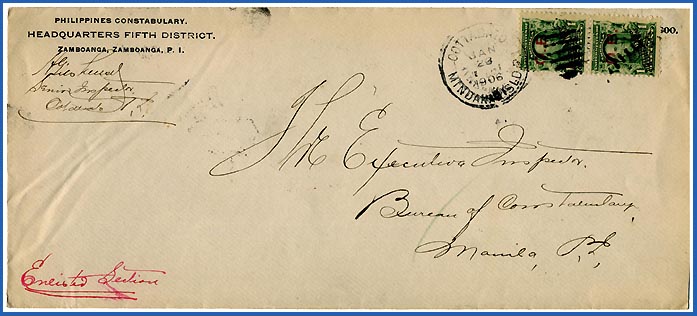 PHILIPPINES CONSTABULARY.
HEADQUARTERS FIFTH DISTRICT.
ZAMBOANGA, ZAMBOANGA, P. I.
Senior Inspector
Cotabato P. I.
COTTABATO
JAN
29
1906
MINDANAO ISLD
O. B.
300.
The Executive Inspector.
Bureau of Constabulary,
Manila, P.I.
Enlisted Section